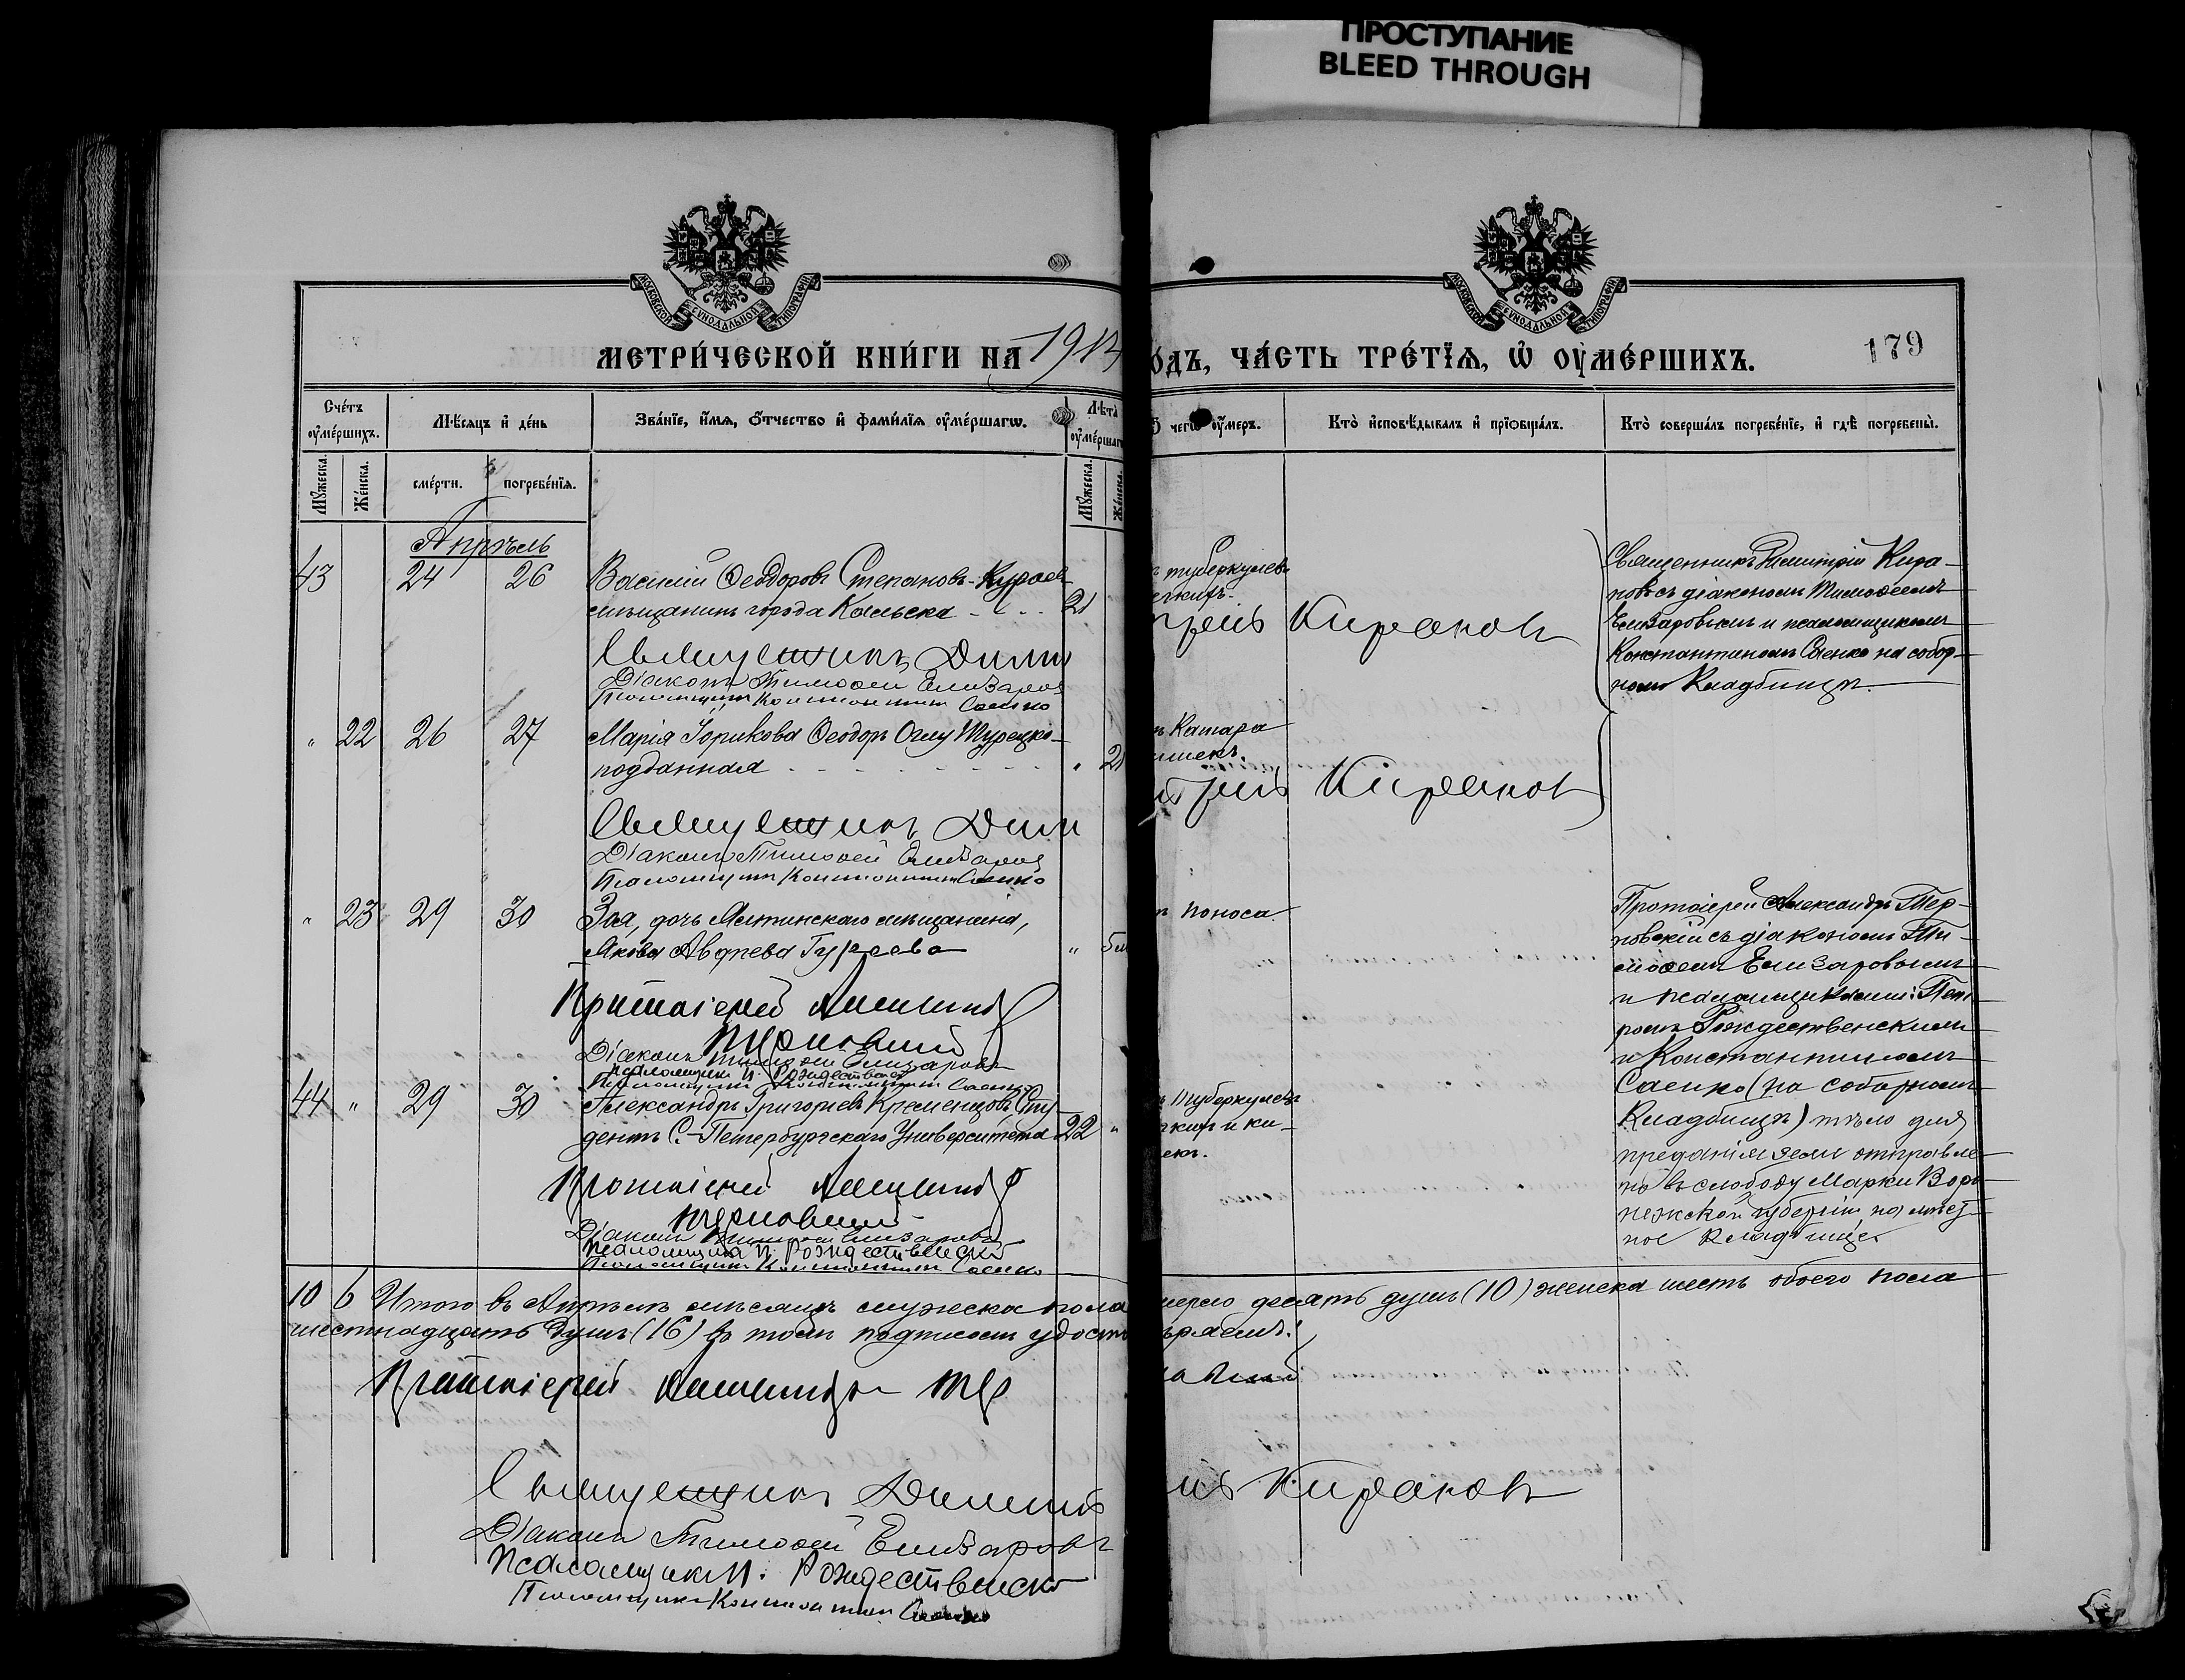 ПРОСТУПАНИЕ
BLEED THROUGH
МОСКОВСКОЙ СѴНОДАЛЬНОЙ ТИПОГРАФІИ
МОСКОВСКОЙ СѴНОДАЛЬНОЙ ТИПОГРАФІИ
МЕТРИ́ЧЕСКОЙ КНИ́ГИ НА 1913
О́ДЪ, ЧА́СТЬ ТРЕ́ТЇѦ, Ѡ҆ ОУ҆МЕ́РШИХЪ.
179
Сче́тъ оу҆ме́ршихъ.
Мѣ́сѧцъ и҆ де́нь
Зва́нїе, и҆́мѧ, ѻ҆́тчество и҆ фами́лїѧ оу҆ме́ршагѡ.
Лѣ́та оу҆ме́ршаг
чегѡ̀ оу҆́меръ.
Кто̀ и҆сповѣ́дывалъ и҆ прїѡбща́лъ.
Кто̀ соверша́лъ погребе́нїе, и҆ гдѣ̀ погребены̀.
Мꙋ́жеска.
Же́нска.
сме́рти.
погребе́нїѧ.
Мꙋ́жеска.
Же́нска.
Апрѣль
43 24 26 Василій Ѳеодоровъ Степановъ-Курая
мѣщанинъ города 21
Священникъ Дими
Діаконъ Тимоѳей Елизаров
Псаломщикъ Константин Саенко
туберкулеза
легкихъ.
трій Кираковъ
Священникъ Димитрій Кира-
новъ съ діакономъ Тимоѳеемъ
Елизаровымъ и псаломщикомъ
Константиномъ Саенко на собор-
номъ Кладбищѣ.
" 22 26 27 Марія Ѳеодоръ Оглу Турецко-
подданная " 21
Священникъ Дими
Діаконъ Тимоѳей Елизаров
Псаломщикъ Константин Саенко
Катара
кишекъ.
трій Кираковъ
" 23 29 30 Зоя, дочь Ялтинскаго мѣщанина,
Якова Авдѣева Гуреева "
Протоіерей Александръ
Терновскій
Діаконъ Тимоѳей Елизаровъ
Псаломщикъ П. Рождественскій
Псаломщикъ Константин Саенко
поноса.
Протоіерей Александръ Тер-
новскій съ діакономъ Ти-
моѳеемъ Елизаровымъ
и псаломщиками: Пет-
ромъ Рождественскимъ
и Константиномъ
Саенко (на соборномъ
Кладбищѣ) тѣло для
преданія земли отправле-
но въ слободу Марки Воро-
нежской губерніи на мѣст-
ное кладбище.
44 " 29 30 Александръ Григорьевъ Кременцовъ Сту-
дентъ С.-Петербургскаго Университета 22 "
Протоіерей Александръ
Терновскій
Діаконъ Тимоѳей Елизаровъ
Псаломщикъ П. Рождественскій
Псаломщикъ Константин Саенко
Туберкулеза
легкихъ и ки-
шекъ.
10 6 Итого въ Апрѣлѣ мѣсяцѣ мужеска пола умерло десять душъ (10) женска шесть обоего пола
шестнадцать душъ (16) въ томъ подписомъ удостовѣряемъ:
Протоіерей Александръ Терновскій
Священникъ Димитрій Кираковъ
Діаконъ Тимоѳей Елизаровъ
Псаломщикъ П. Рождественскій
Псаломщикъ Константин Саенко